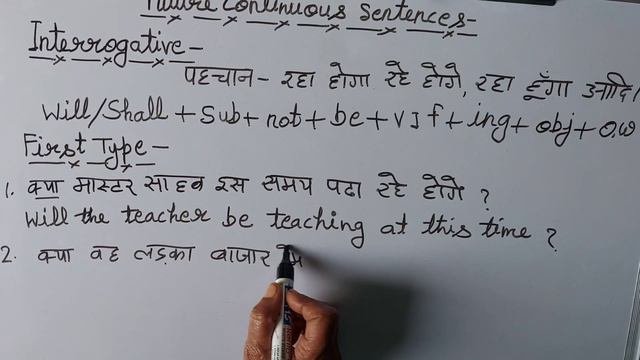 Future Continuous Sentences-
Interrogative-
पहचान- रहा होगा रहे होगे, रहा हूँगा आदि।
Will/Shall + Sub + not + be + v1 f + ing + obj + o.w
First Type-
1. क्या मास्टर साहब इस समय पढा रहे होगे ?
Will the teacher be teaching at this time ?
2. क्या वह लड़का बाजार